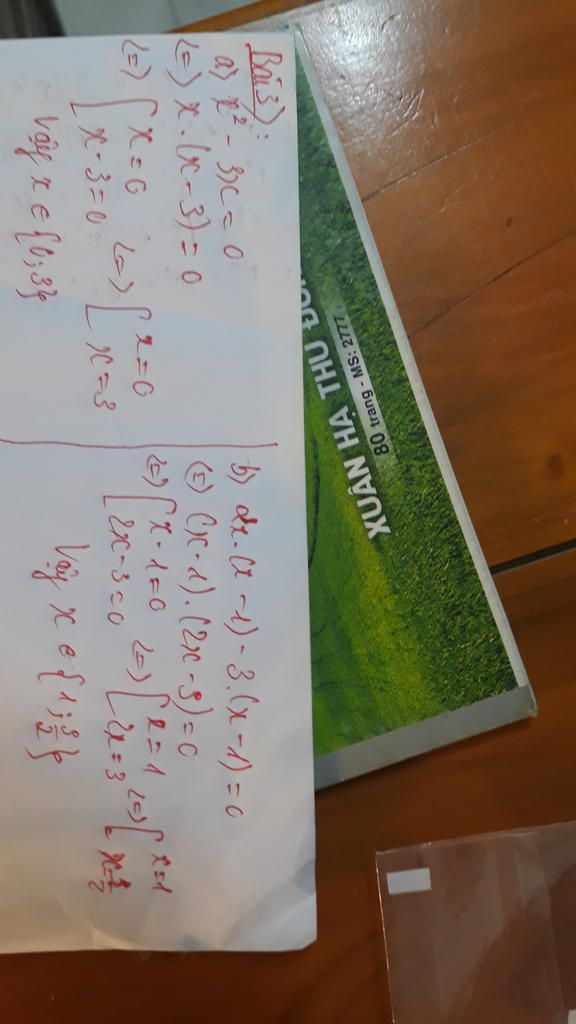 Bài 3):
a) x² - 3x = 0
<=> x.(x - 3) = 0
<=> [ x = 0
x - 3 = 0 <=> [ x = 0
x = 3
Vậy x ∈ {0; 3}
b) 2x.(x - 1) - 3.(x - 1) = 0
(=) (x - 1).(2x - 3) = 0
<=> [ x - 1 = 0
2x - 3 = 0 <=> [ x = 1
2x = 3 <=> [ x = 1
x = 3/2
Vậy x ∈ {1; 3/2}
XUÂN HẠ THU
80 trang - MS: 2777